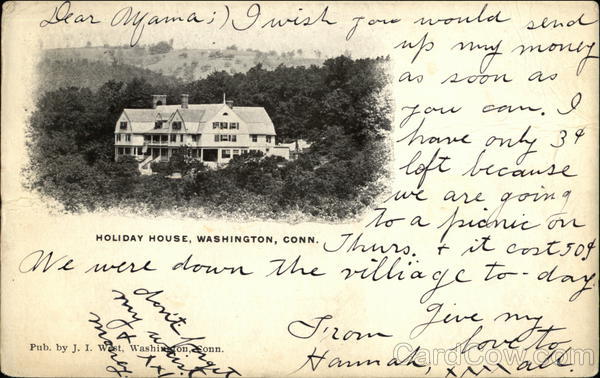 Dear Mama;) I wish you would send
up my money
as soon as
you can. I
have only 3¢
left because
we are going
to a picnic on
Thurs. + it cost 50¢
We were down the villiage to-day.
Give my
love to
all
From
Hannah, xxxx
don't forget
my waist
& xx
money
HOLIDAY HOUSE, WASHINGTON, CONN.
Pub. by J. I. West, Washington, Conn.
CardCow.com